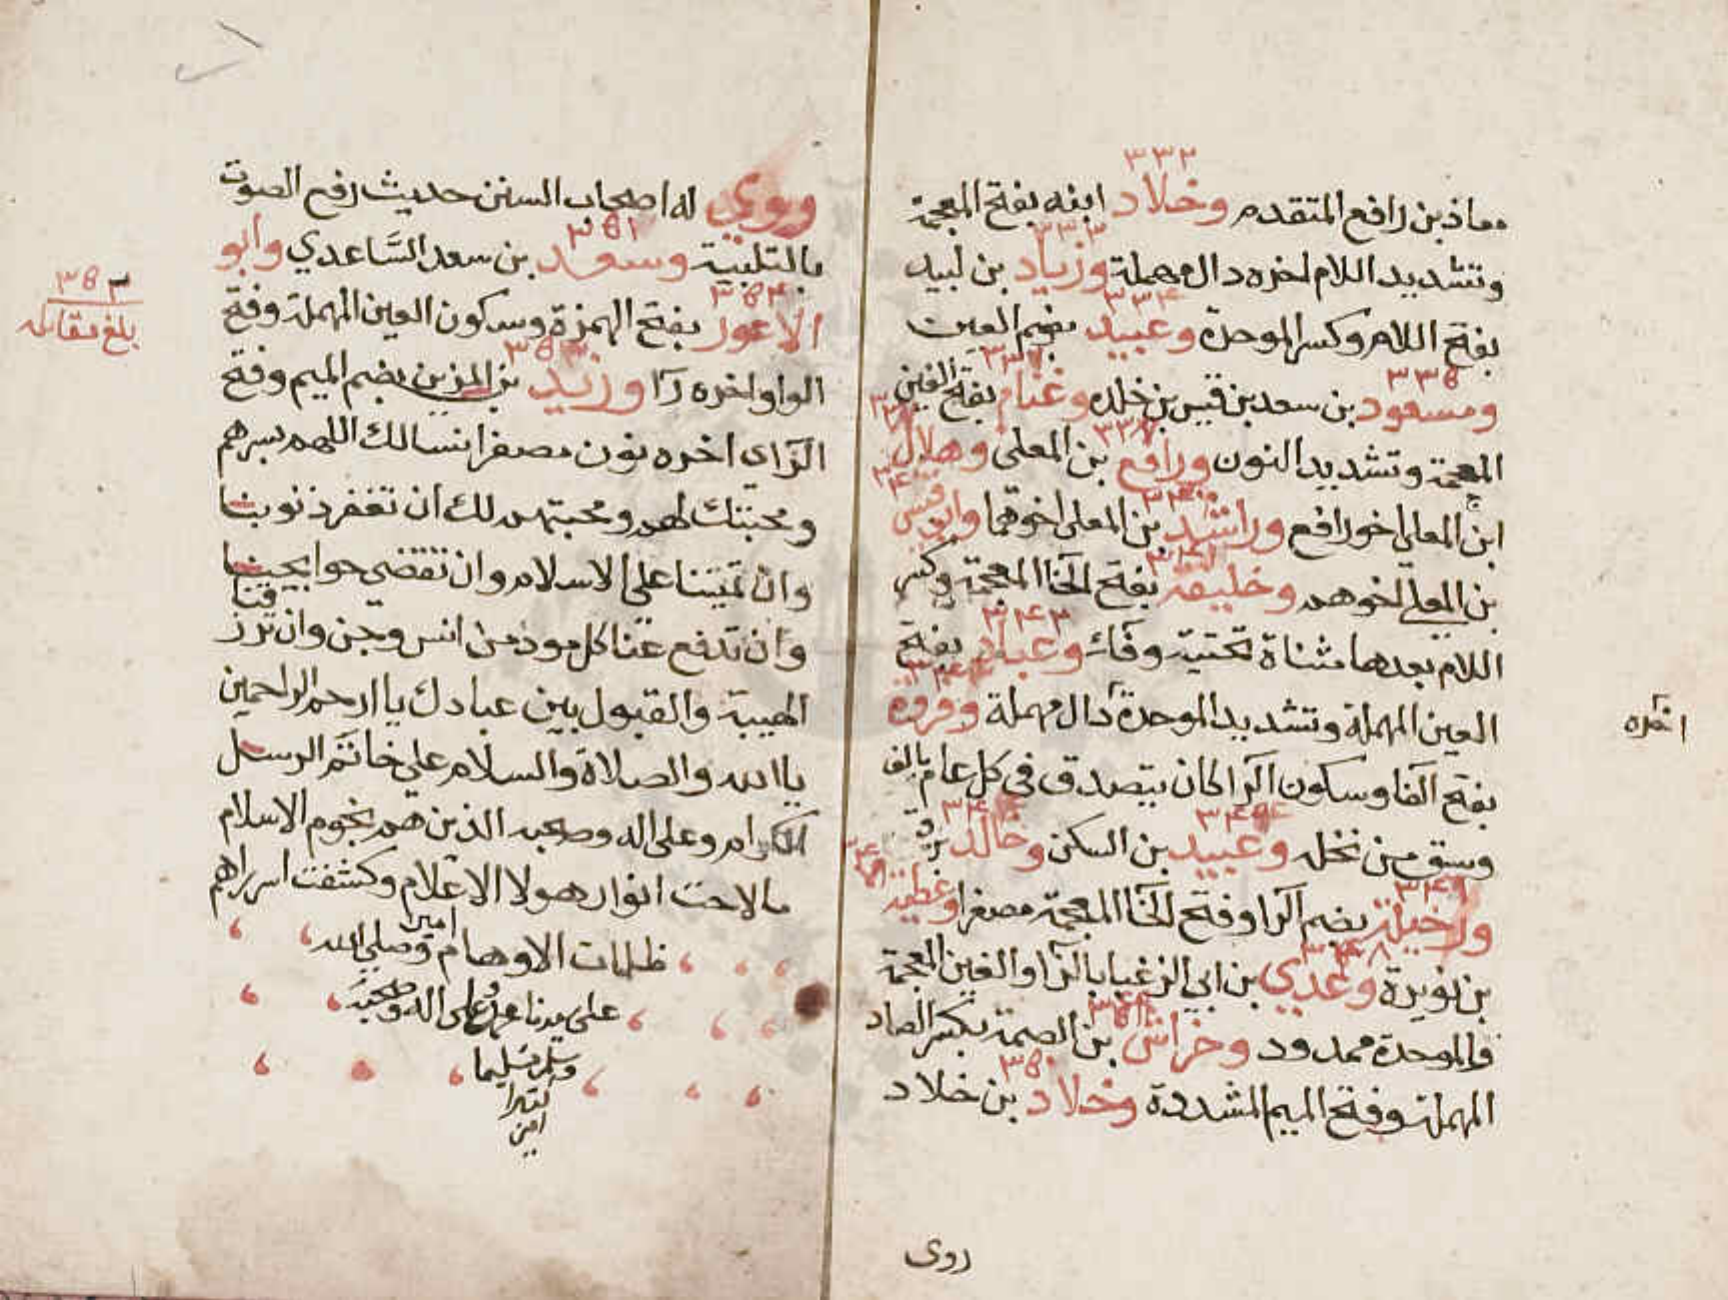 ٣٣٢
معاذ بن رافع المتقدم وخلاد ابنه بفتح المعجمة
٣٣٣
وتشديد اللام اخره دال مهملة وزياد بن لبيد
٣٣٤
بفتح اللام وكسر الموحدة وعبيد بضم العين
٣٣٥
ومسعود بن سعد بن قيس بن خلده وغنام بفتح الغين
المعجمة وتشديد النون ورافع بن المعلى وهلال
ابن المعلى اخو رافع وراشد بن المعلى اخوهما وابو قيس
بن المعلى اخوهم وخليفه بفتح الخا المعجمة وكسر
٣٤٣
اللام بعدها مثناة تحتية وفاء وعباد بفتح
العين المهملة وتشديد الموحدة دال مهملة وفروه
اخره
بفتح الفا وسكون الرا كان يتصدق في كل عام بالف
وسق من نخله وعبيد بن السكن وخالد
ورخيلة بضم الرا وفتح الخا المعجمة مصغرا وعطية
٣٤٨
بن نويرة وعدي بن ابي الزغبا بالزا والغين المعجمة
فالموحدة ممدود وخراش بن الصمة بكسر الصاد
٣٥٠
المهملة وفتح الميم المشددة وخلاد بن خلاد
روى
وروي له اصحاب السنن حديث رفع الصوت
٣٥١
بالتلبية وسعد بن سعد الساعدي وابو
الاعور بفتح الهمزة وسكون العين المهملة وفتح
٣٥٣
بلغ مقابله
٣٥٣
الواو اخره را وزيد بن المزين بضم الميم وفتح
الزاي اخره نون مصغرا نسالك اللهم بسرهم
ومحبتك لهم ومحبتهم لك ان تغفر ذنوبنا
وان تميتنا على الاسلام وان تقضي حوايجنا
وان تدفع عنا كل موذ من انس وجن وان ترزقنا
الهيبة والقبول بين عبادك يا ارحم الراحمين
يا الله والصلاة والسلام على خاتم الرسل
الكرام وعلى اله وصحبه الذين هم نجوم الاسلام
ما لاحت انوار هولا الاعلام وكشفت اسرارهم
ظلمات الاوهام امين وصلى الله
على سيدنا محمد وعلى اله وصحبه
وسلم تسليما
كثيرا
امين